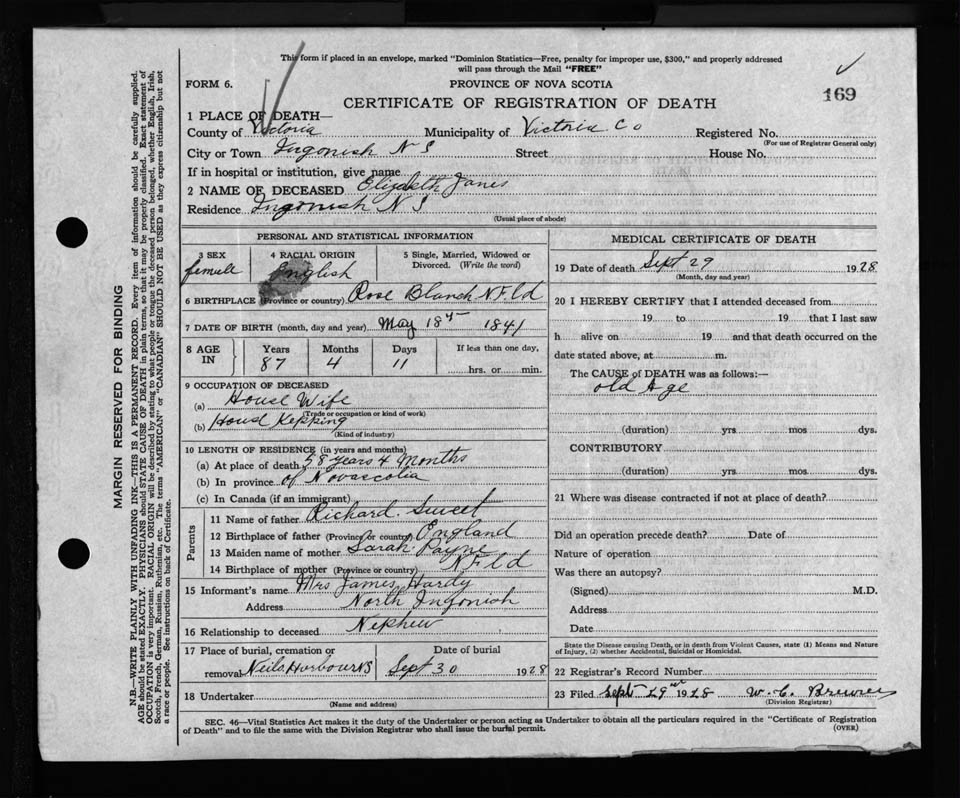 This form if placed in an envelope, marked "Dominion Statistics—Free, penalty for improper use, $300," and properly addressed
will pass through the Mail "FREE"
FORM 6.
PROVINCE OF NOVA SCOTIA
169
CERTIFICATE OF REGISTRATION OF DEATH
1 PLACE OF DEATH—
County of Victoria Municipality of Victoria Co Registered No.
(For use of Registrar General only)
City or Town Ingonish N S Street House No.
If in hospital or institution, give name
2 NAME OF DECEASED Elizabeth Janes
Residence Ingonish N S
(Usual place of abode)
PERSONAL AND STATISTICAL INFORMATION
3 SEX 4 RACIAL ORIGIN 5 Single, Married, Widowed or
Divorced. (Write the word)
female English
6 BIRTHPLACE (Province or country) Rose Blanch N.F.ld
7 DATE OF BIRTH (month, day and year) May 18th 1841
8 AGE IN Years Months Days If less than one day,
87 4 11 hrs. or min.
9 OCCUPATION OF DECEASED
(a) House Wife
(Trade or occupation or kind of work)
(b) Housd Kepping
(Kind of industry)
10 LENGTH OF RESIDENCE (in years and months)
(a) At place of death 58 years 4 Months
(b) In province of Novascotia
(c) In Canada (if an immigrant)
Parents
11 Name of father Richard Sweet
12 Birthplace of father (Province or country) England
13 Maiden name of mother Sarah Payne
14 Birthplace of mother (Province or country) N F l d
15 Informant's name Mrs James Hardy
Address North Ingonish
16 Relationship to deceased Nephew
17 Place of burial, cremation or Date of burial
removal Neils Harbour NS Sept 30 1928
18 Undertaker
(Name and address)
MEDICAL CERTIFICATE OF DEATH
19 Date of death Sept 29 1928
(Month, day and year)
20 I HEREBY CERTIFY that I attended deceased from
19 to 19 that I last saw
h alive on 19 and that death occurred on the
date stated above, at m.
The CAUSE of DEATH was as follows:—
old Age
(duration) yrs mos dys.
CONTRIBUTORY
(duration) yrs mos dys.
21 Where was disease contracted if not at place of death?
Did an operation precede death? Date of
Nature of operation
Was there an autopsy?
(Signed) M.D.
Address
Date
State the Disease causing Death, or in death from Violent Causes, state (1) Means and Nature
of Injury, (2) whether Accidental, Suicidal or Homicidal.
22 Registrar's Record Number
23 Filed Sept 29 1928 W. C. Brewer
(Division Registrar)
SEC. 46—Vital Statistics Act makes it the duty of the Undertaker or person acting as Undertaker to obtain all the particulars required in the "Certificate of Registration
of Death" and to file the same with the Division Registrar who shall issue the burial permit.
(OVER)
MARGIN RESERVED FOR BINDING
N.B.—WRITE PLAINLY WITH UNFADING INK—THIS IS A PERMANENT RECORD. Every item of information should be carefully supplied.
AGE should be stated EXACTLY. PHYSICIANS should STATE CAUSE OF DEATH in plain terms, so that it may be properly classified. Exact statement of
OCCUPATION is very important. RACIAL ORIGIN will be described by stating to what people or tongue the deceased person belonged, whether English, Irish,
Scotch, French, German, Russian, Ruthenian, etc. The terms "AMERICAN" or "CANADIAN" SHOULD NOT BE USED as they express citizenship but not
a race or people. See instructions on back of Certificate.